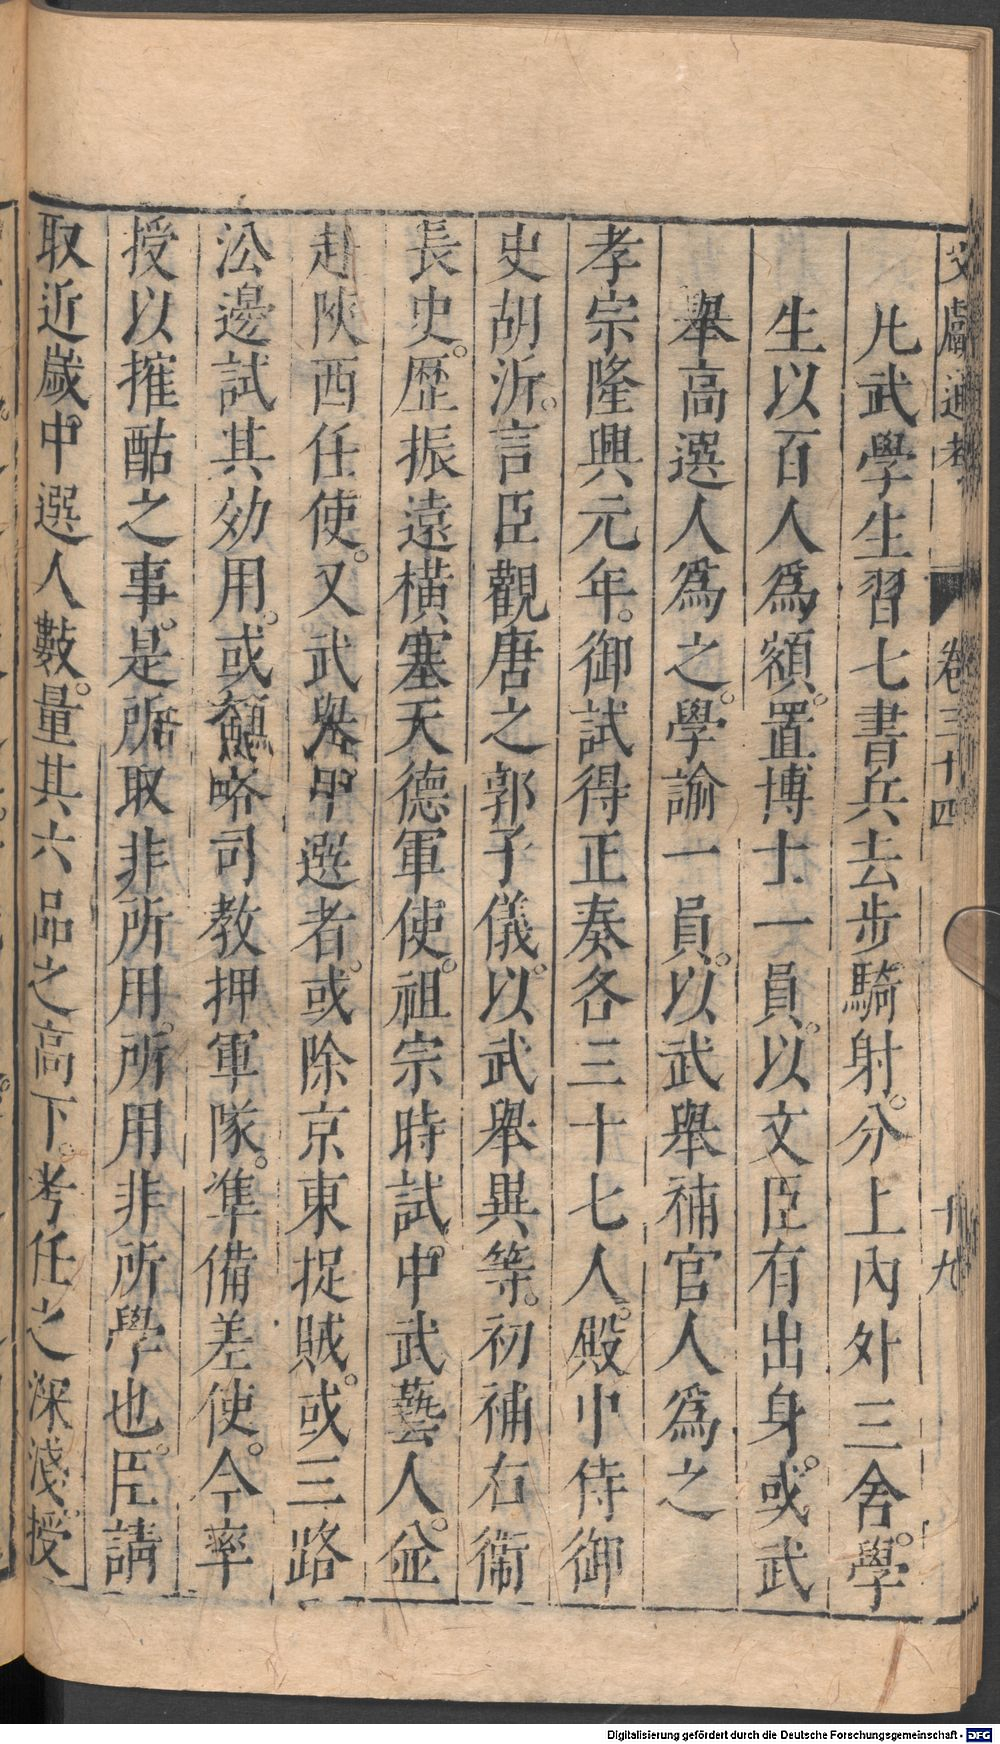 文獻通考 卷三十四 十九
凡武學生習七書兵去步騎射。分上內外三舍。學
生以百人爲額。置博士一員。以文臣有出身。或武
舉高選人爲之。學諭一員。以武舉補官人爲之
孝宗隆興元年。御試得正奏各三十七人。殿中侍御
史胡沂。言臣觀唐之郭子儀。以武舉異等。初補右衛
長史。歷振遠橫塞天德軍使。祖宗時試。中武藝人。並
赴陝西任使。又武舉甲選者。或除京東捉賊。或三路
㳂邊試其効用。或經略司教押軍隊。準備差使。今率
授以搉酤之事。是所取非所用。所用非所學也。臣請
取近歲中選人數。量其六品之高下。考任之深淺。授
Digitalisierung gefördert durch die Deutsche Forschungsgemeinschaft - DFG